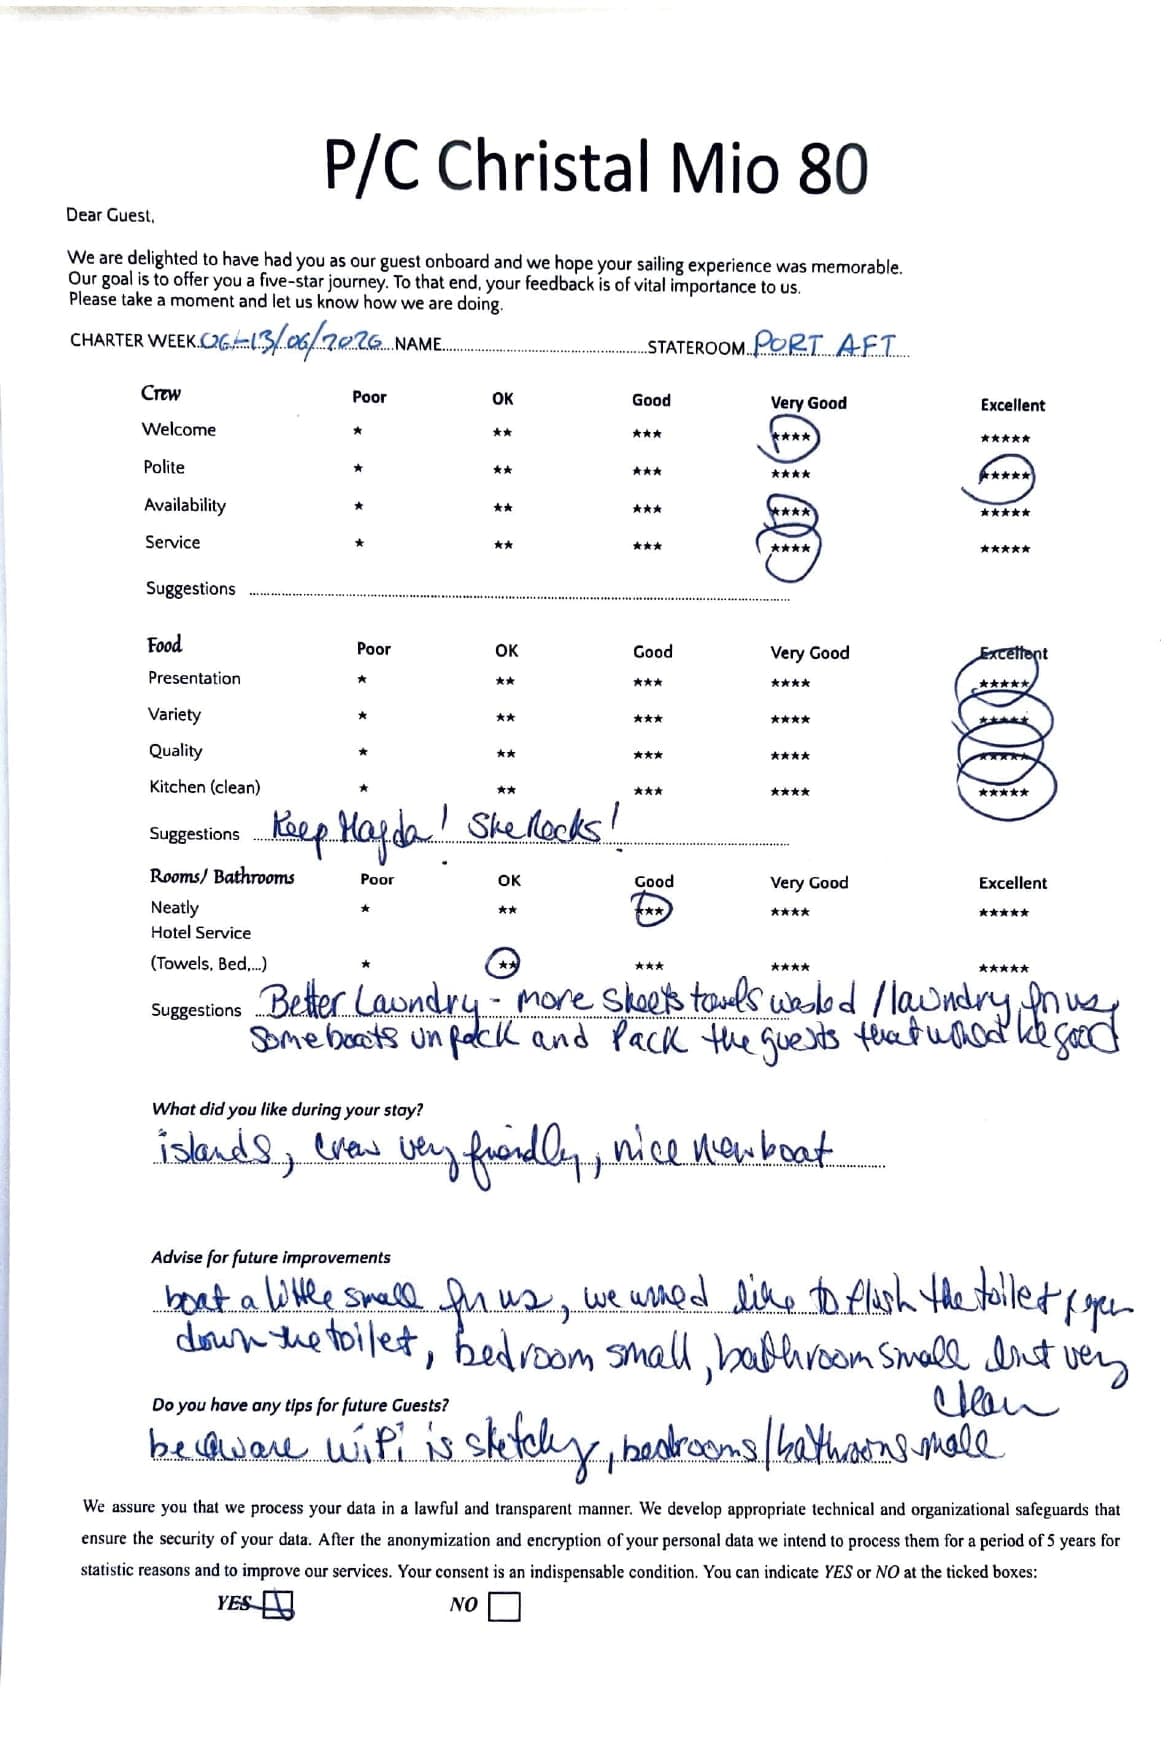 P/C Christal Mio 80
Dear Guest,
We are delighted to have had you as our guest onboard and we hope your sailing experience was memorable.
Our goal is to offer you a five-star journey. To that end, your feedback is of vital importance to us.
Please take a moment and let us know how we are doing.
CHARTER WEEK 06-13/06/2026 NAME STATEROOM PORT AFT
Crew Poor OK Good Very Good Excellent
Welcome ★ ★★ ★★★ ★★★★ ★★★★★
Polite ★ ★★ ★★★ ★★★★ ★★★★★
Availability ★ ★★ ★★★ ★★★★ ★★★★★
Service ★ ★★ ★★★ ★★★★ ★★★★★
Suggestions
Food Poor OK Good Very Good Excellent
Presentation ★ ★★ ★★★ ★★★★ ★★★★★
Variety ★ ★★ ★★★ ★★★★ ★★★★★
Quality ★ ★★ ★★★ ★★★★ ★★★★★
Kitchen (clean) ★ ★★ ★★★ ★★★★ ★★★★★
Suggestions Keep Magda! She Rocks!
Rooms/ Bathrooms Poor OK Good Very Good Excellent
Neatly ★ ★★ ★★★ ★★★★ ★★★★★
Hotel Service
(Towels, Bed,...) ★ ★★ ★★★ ★★★★ ★★★★★
Suggestions Better Laundry - more sheets towels washed / laundry for us
some boats unpack and pack the guests that would be good
What did you like during your stay?
islands, crew very friendly, nice new boat
Advise for future improvements
boat a little small for us, we would like to flush the toilet paper
down the toilet, bedroom small, bathroom small but very
clean
Do you have any tips for future Guests?
be aware wiFi is sketchy, bedrooms/bathroom small
We assure you that we process your data in a lawful and transparent manner. We develop appropriate technical and organizational safeguards that
ensure the security of your data. After the anonymization and encryption of your personal data we intend to process them for a period of 5 years for
statistic reasons and to improve our services. Your consent is an indispensable condition. You can indicate YES or NO at the ticked boxes:
YES NO